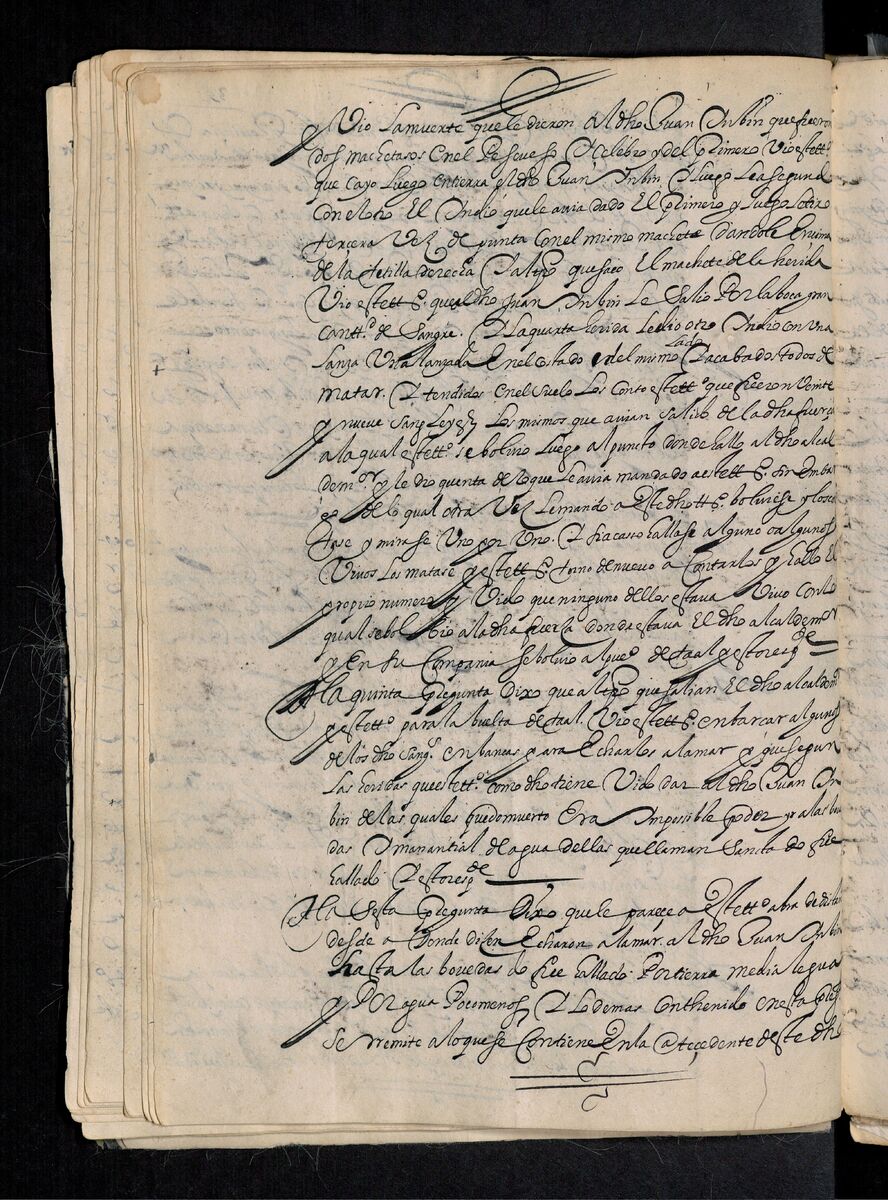 y Vio la muerte que le dieron al dho Juan Inbin que fueron
dos machetasos en el Pescueso I Celebro y del primero Vio este tto
que cayo luego en tierra el dho Juan Inbin I luego le asegundo
con el otro El Indio que le avia dado El primero y luego
tercera Vez de punta con el mismo machete dandole En sima
de la tetilla derecha I al tpo que saco El machete de la herida
Vio este tto que al dho Juan Inbin le Salio Por la boca gran
cantt.d de Sangre. I la quarta herida le dio otro Indio con Una
lanza Una lanzada En el Costado del mismo lado I acabados todos de
matar. I tendidos en el suelo Los Conto este tto que fueron Veinte
y nueve Sangleyes Los mismos que avian salido de la dha fuerça
a la qual este tto se bolvio luego al puncto donde hallo al dho alcal
de mor y le dio quenta de lo que le avia mandado a este tto Sin Emba
go de lo qual otra Vez le mando a este dho tto bolviese y los co
tase y mirase Uno por Uno. I si acaso hallase alguno o algunos
Vivos los matase y este tto torno de nuevo a Contarlos y hallo El
proprio numero y Vido que ninguno dellos estava Vivo Con lo
qual se bolvio a la dha fuerça donde estava El dho alcalde mor
y En su Compania se bolvio al pueo de taal y esto respde
A la quinta pregunta Dixo que al tpo que salian El dho alcalde mor
y este tto para la buelta de taal. Vio este tto enbarcar algunos
de los dhos Sangs en bancas para Echarlos a la mar y que segun
Las heridas que este tto como dho tiene Vido dar al dho Juan In
bin de las quales quedo muerto Era Impossible poder yr a las bove
das I manantial de agua dellas que llaman Sancta do fue
hallado I esto respde
A la Sesta Pregunta Dixo que le parece a Este tto abra de distan
desde a Donde disen Echaron a la mar. al dho Juan Inbin
hasta las bovedas do fue hallado Por tierra media legua
y Por agua Poco menos I Lo demas Conthenido en esta preg
Se rremite a lo que se Contiene En la Antecedente deste dho